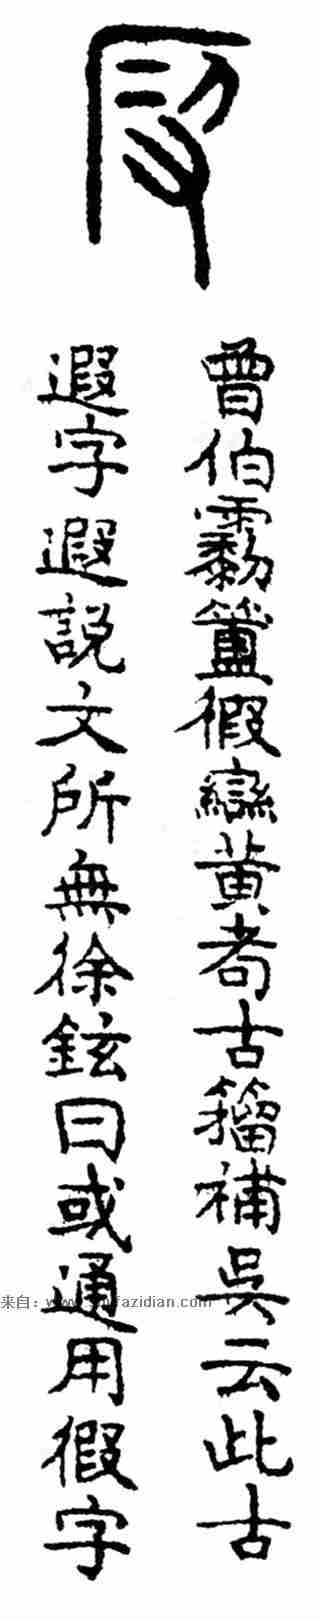 叚
曾伯霥簠徦䜌黃耇古籀補吳云此古
遐字遐說文所無徐鉉曰或通用徦字
来自：www.shufazidian.com